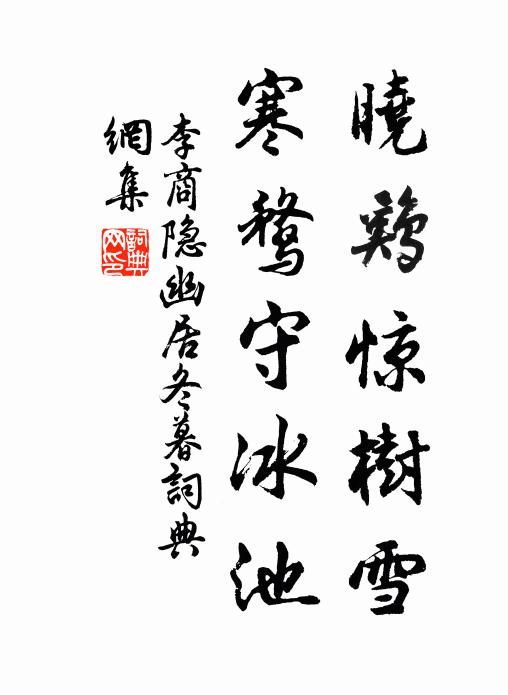 曉鷄惊樹雪
寒鶩守冰池
李商隐幽居冬暮詞典
網集
詞典网印